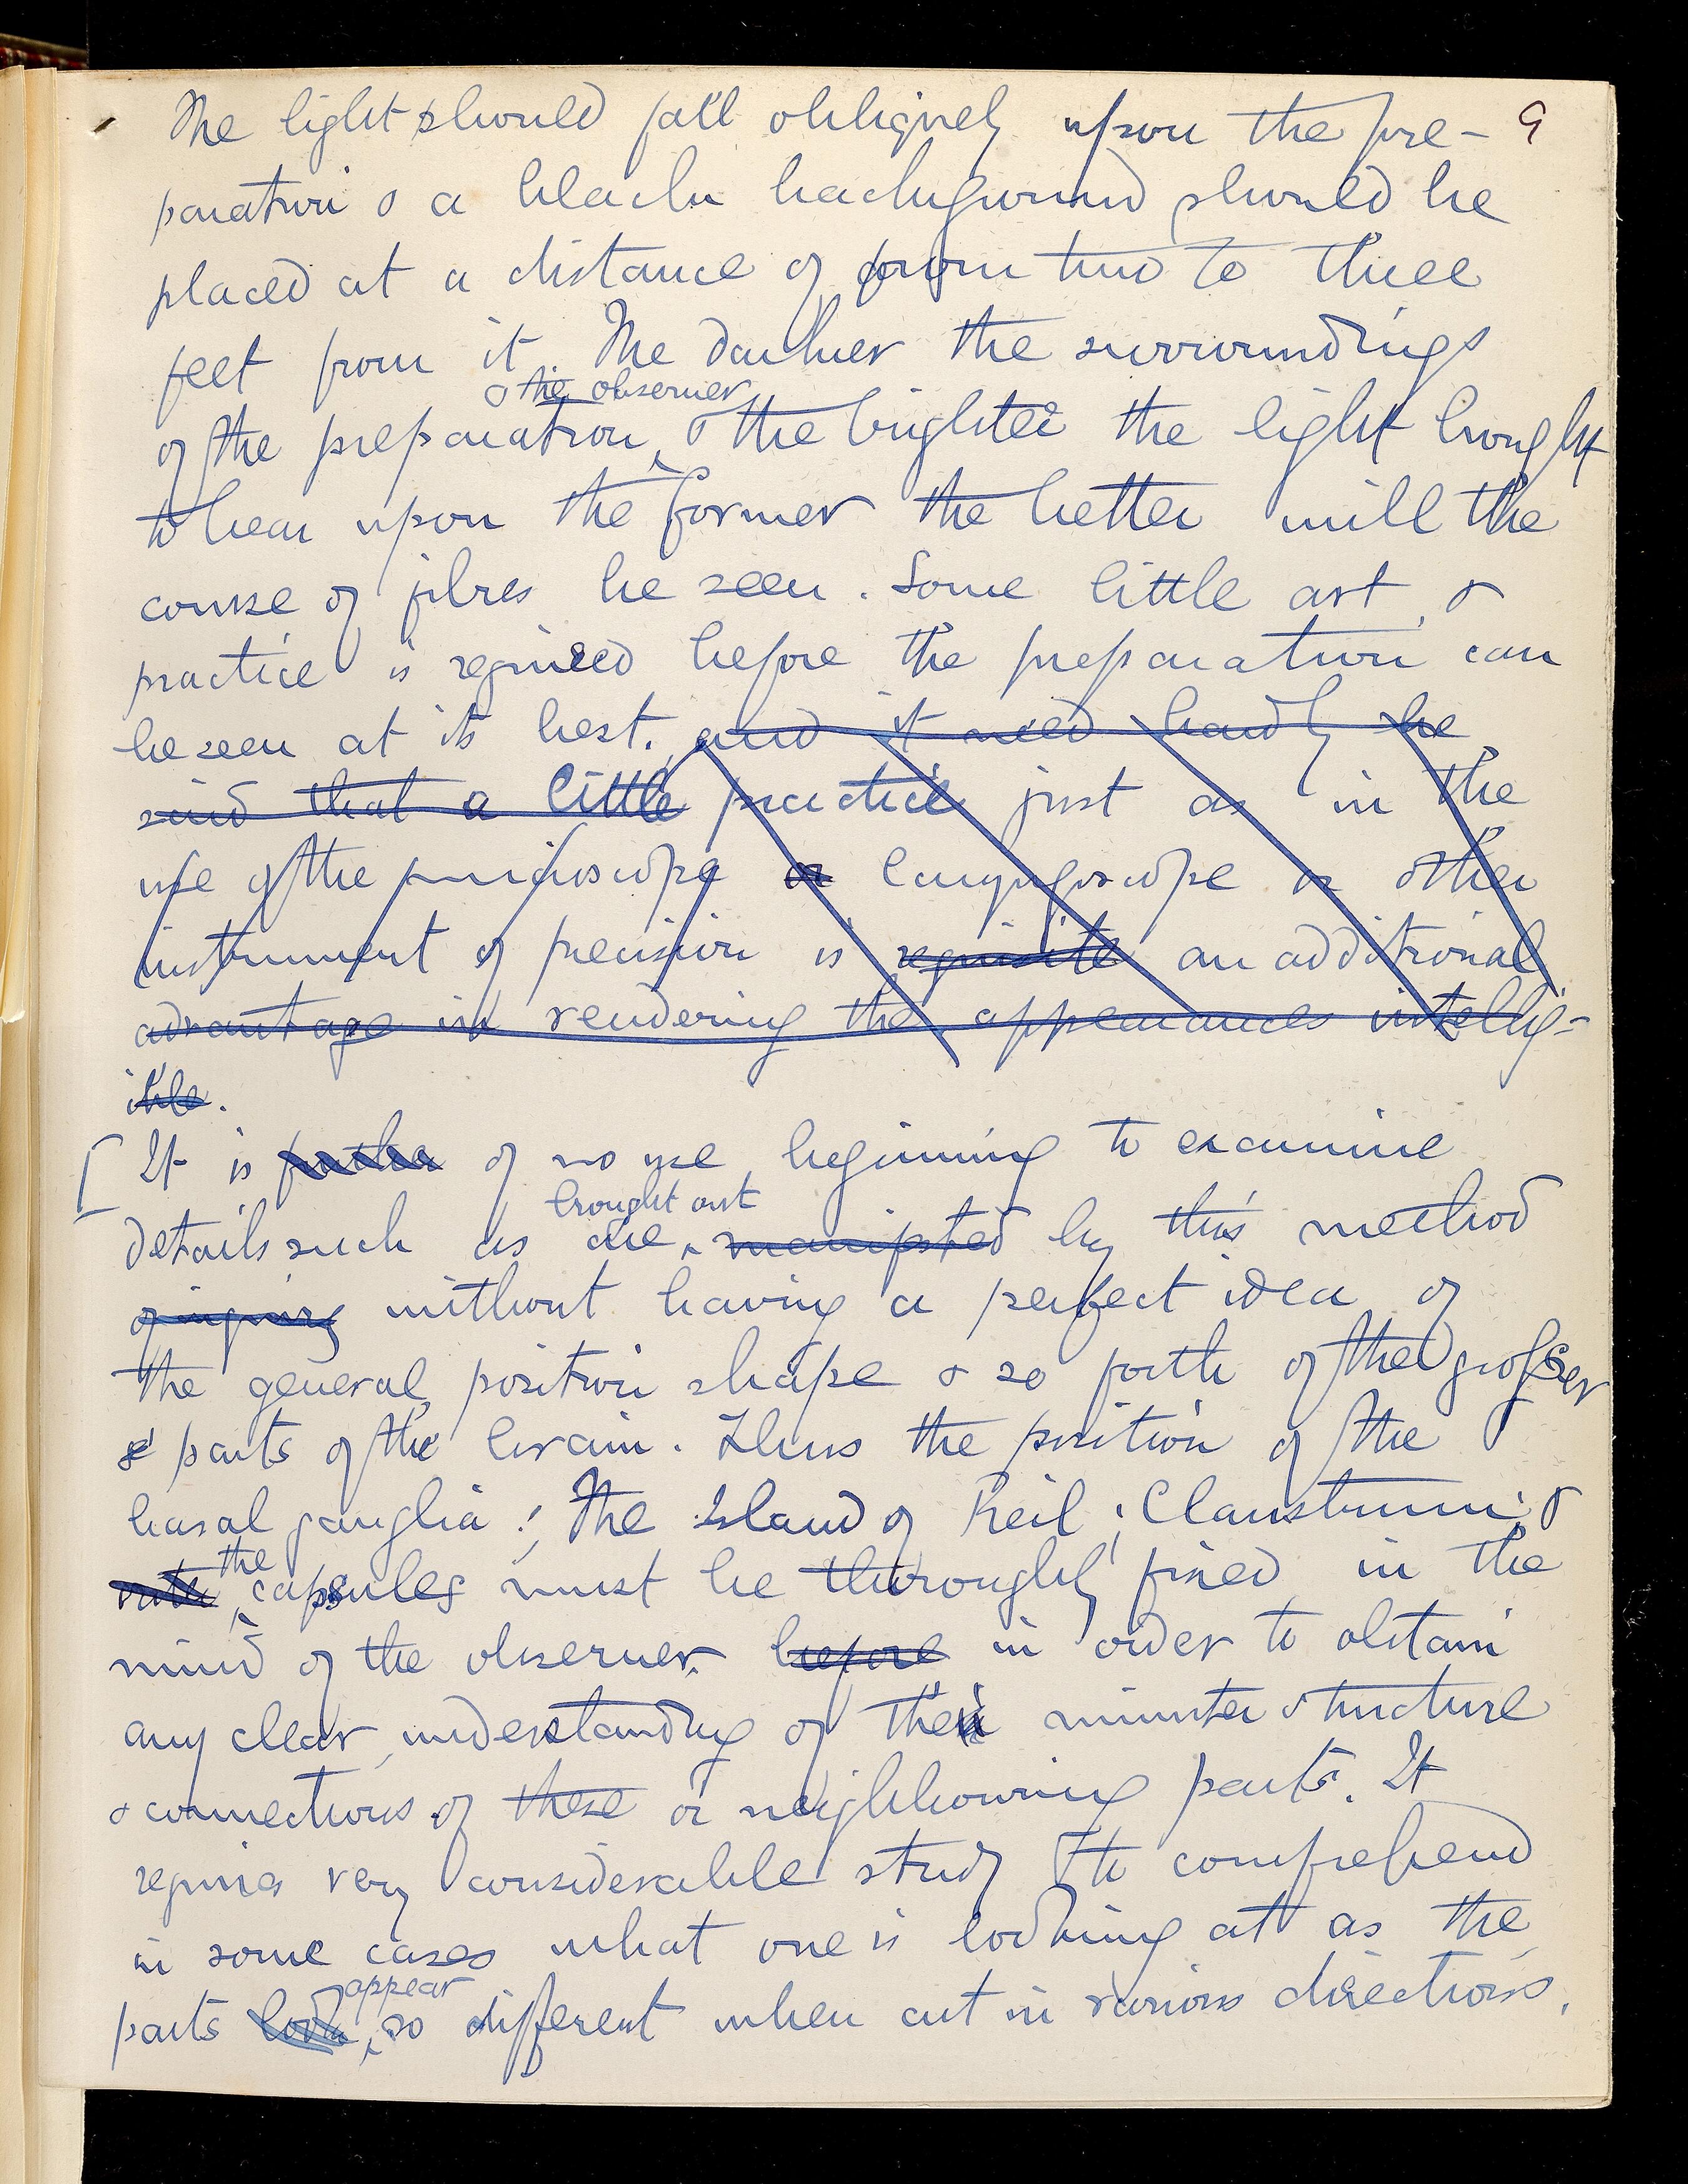 The light should fall obliquely upon the pre- 9
paration & a black background should be
placed at a distance of from two to three
feet from it The darker the surroundings
& the observer
of the preparation & the brighter the light brought
to bear upon the former the better will the
course of fibres be seen. Some little art &
practice is required before the preparation can
be seen at its best. and it need hardly be
said that a little practice just as in the
use of the microscope or laryngoscope or other
instrument of precision is requisite an additional
advantage in rendering the appearances intellig-
ible.
[ It is further of no use beginning to examine
brought out
details such as are manifested by this method
of inquiry without having a perfect idea of
the general position shape & so forth of the grosser
parts of the brain. Thus the position of the
basal ganglia; The Island of Reil; Claustrum; &
the
capsules must be thoroughly fixed in the
mind of the observer before in order to obtain
any clear understanding of their minuter structure
& connections of these or neighbouring parts. It
requires very considerable study to comprehend
in some cases what one is looking at as the
appear
parts look so different when cut in various directions.